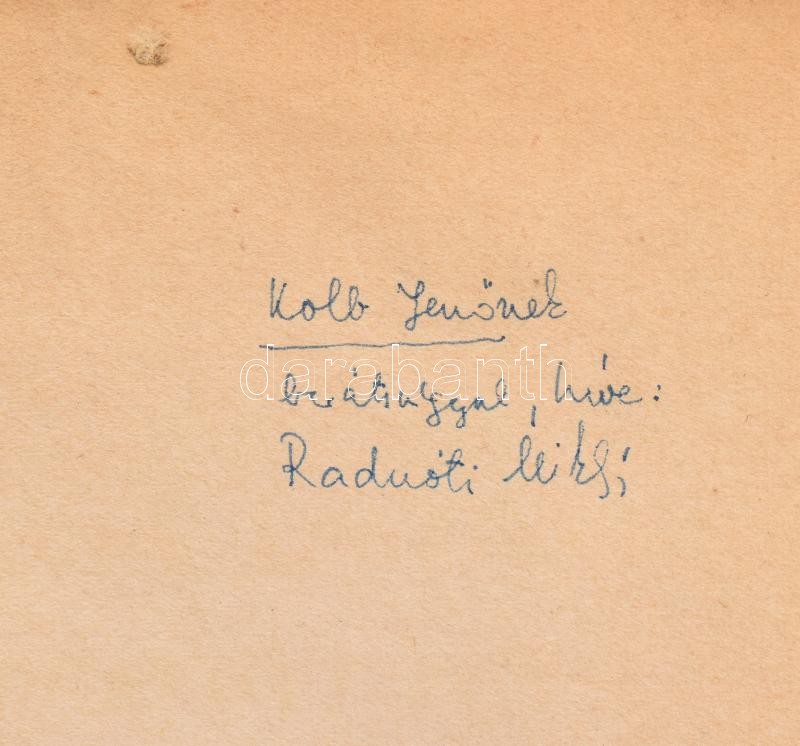 Kolb Jenőnek
darabanth
barátsággal, híve:
Radnóti Miklós